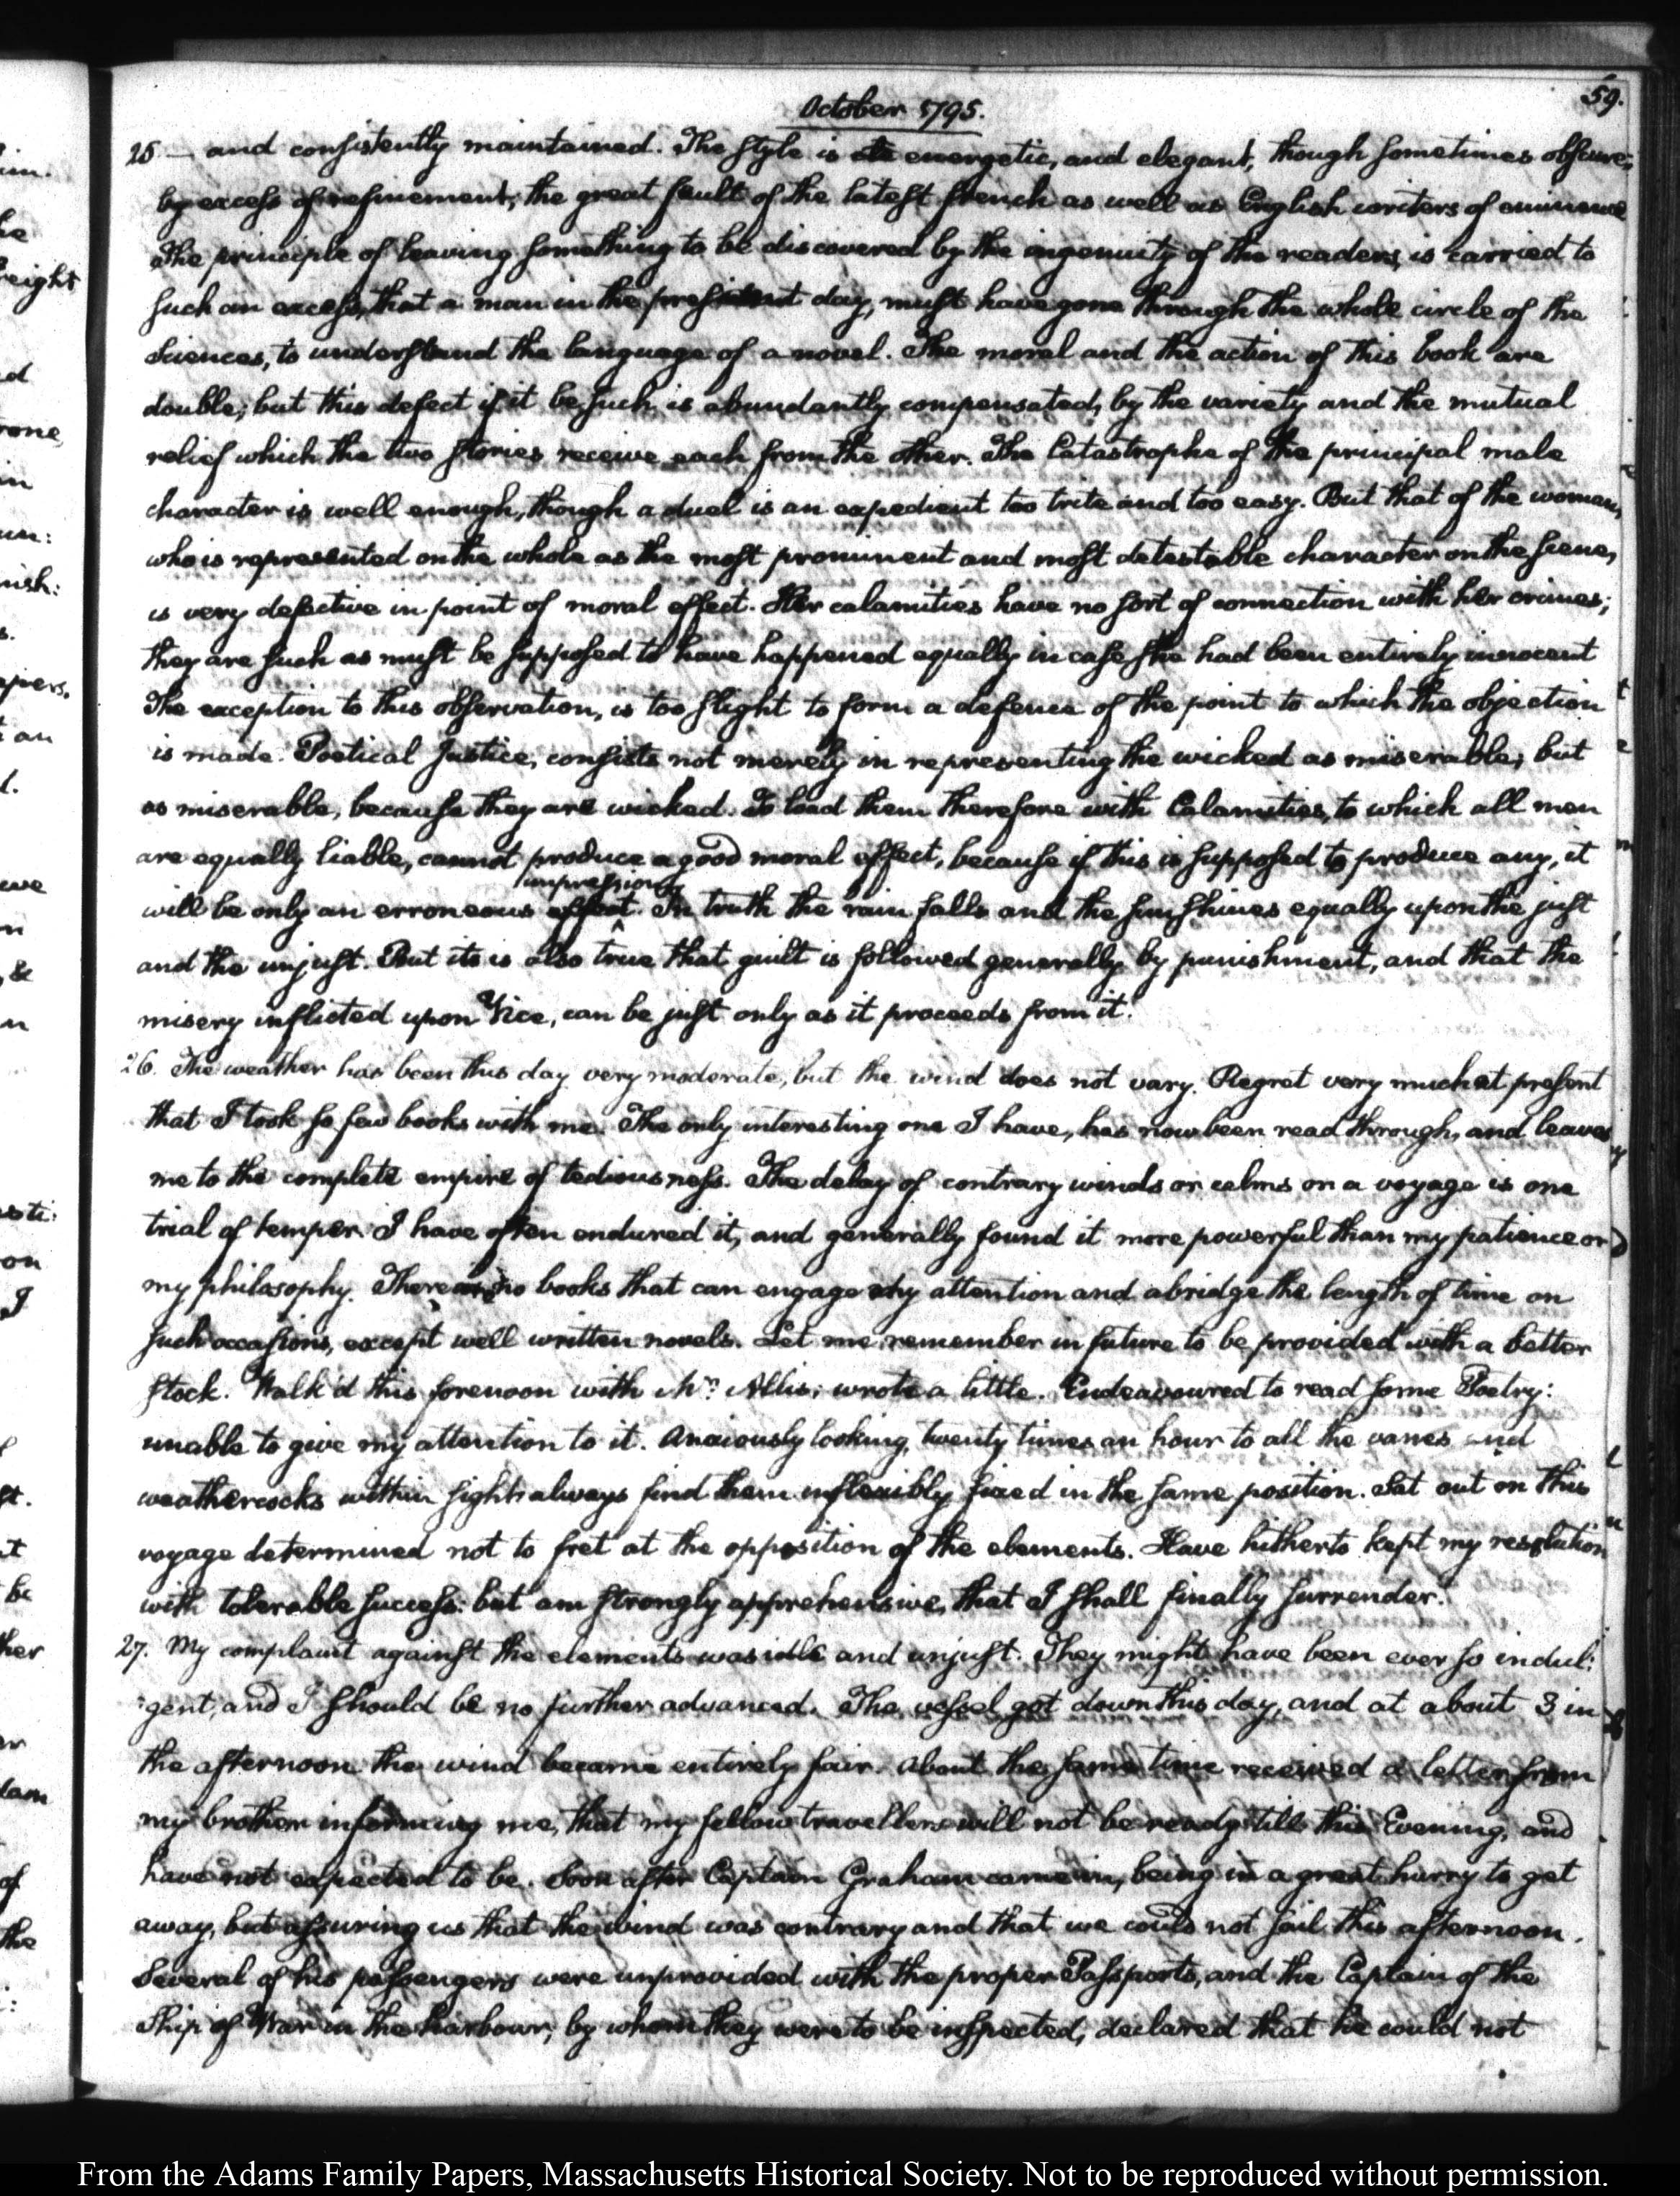 59.
October 1795.
25 — and consistently maintained. The style is energetic, and elegant, though sometimes obscure,
by excess of refinement; the great fault of the latest french as well as English writers of eminence
The principle of leaving something to be discovered by the ingenuity of the readers, is carried to
such an excess, that a man in the present day, must have gone through the whole circle of the
Sciences, to understand the language of a novel. The moral and the action of this book are
double; but this defect if it be such is abundantly compensated, by the variety and the mutual
relief which the two stories receive each from the other. The Catastrophe of the principal male
character is well enough, though a duel is an expedient too trite and too easy. But that of the woman,
who is represented on the whole as the most prominent and most detestable character on the scene,
is very defective in point of moral effect. Her calamities have no sort of connection with her crimes;
they are such as must be supposed to have happened equally in case she had been entirely innocent
The exception to this observation, is too slight to form a defence of the point to which the objection
is made. Poetical Justice, consists not merely in representing the wicked as miserable; but
as miserable, because they are wicked. To load them therefore with Calamities, to which all men
are equally liable, cannot produce a good moral effect, because if this is supposed to produce any, it
impression
will be only an erroneous effect. In truth the rain falls and the sun shines equally upon the just
and the unjust. But its is also true that guilt is followed generally by punishment, and that the
misery inflicted upon Vice, can be just only as it proceeds from it.
26. The weather has been this day very moderate, but the wind does not vary. Regret very much at present
that I took so few books with me. The only interesting one I have, has now been read through, and leaves
me to the complete empire of tediousness. The delay of contrary winds or calms on a voyage is one
trial of temper. I have often endured it, and generally found it more powerful than my patience or
my philosophy. There are no books that can engage my attention and abridge the length of time on
such occasions, except well written novels. Let me remember in future to be provided with a better
stock. Walk'd this forenoon with Mr. Allis; wrote a little. Endeavoured to read some Poetry:
unable to give my attention to it. Anxiously looking, twenty times an hour to all the vanes and
weathercocks within sight always find them inflexibly fixed in the same position. Sat out on this
voyage determined not to fret at the opposition of the elements. Have hitherto kept my resolution
with tolerable success: but am strongly apprehensive, that I shall finally surrender.
27. My complaint against the elements was idle and unjust. They might have been ever so indul:
:gent, and I should be no further advanced. The vessel got down this day, and at about 3 in
the afternoon the wind became entirely fair. About the same time received a letter from
my brother informing me, that my fellow travellers will not be ready till this Evening, and
have not expected to be. Soon after Captain Graham came in, being in a great hurry to get
away, but assuring us that the wind was contrary and that we could not sail this afternoon.
Several of his passengers were unprovided with the proper Passports, and the Captain of the
Ship of War in the harbour, by whom they were to be inspected, declared that he could not
From the Adams Family Papers, Massachusetts Historical Society. Not to be reproduced without permission.